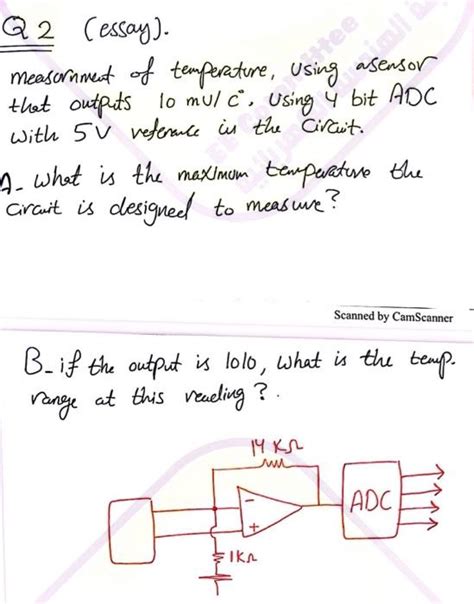 Q2 (essay).
measornment of temperature, Using a sensor
that outputs 10 mV/C°, Using 4 bit ADC
with 5V reference in the Circuit.
A- what is the maximum temperature the
Circuit is designed to measure?
Scanned by CamScanner
B- if the output is 1010, what is the temp.
range at this reading?
14 KΩ
-
+
ADC
1KΩ